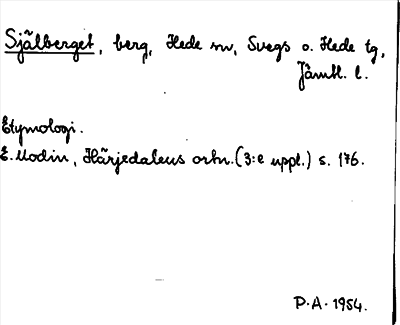 Själberget, berg, Hede sn, Svegs o. Hede tg,
Jämtl. l.
Etymologi.
E. Modin, Härjedalens ortn. (3:e uppl.) s. 176.
P.A. 1954.